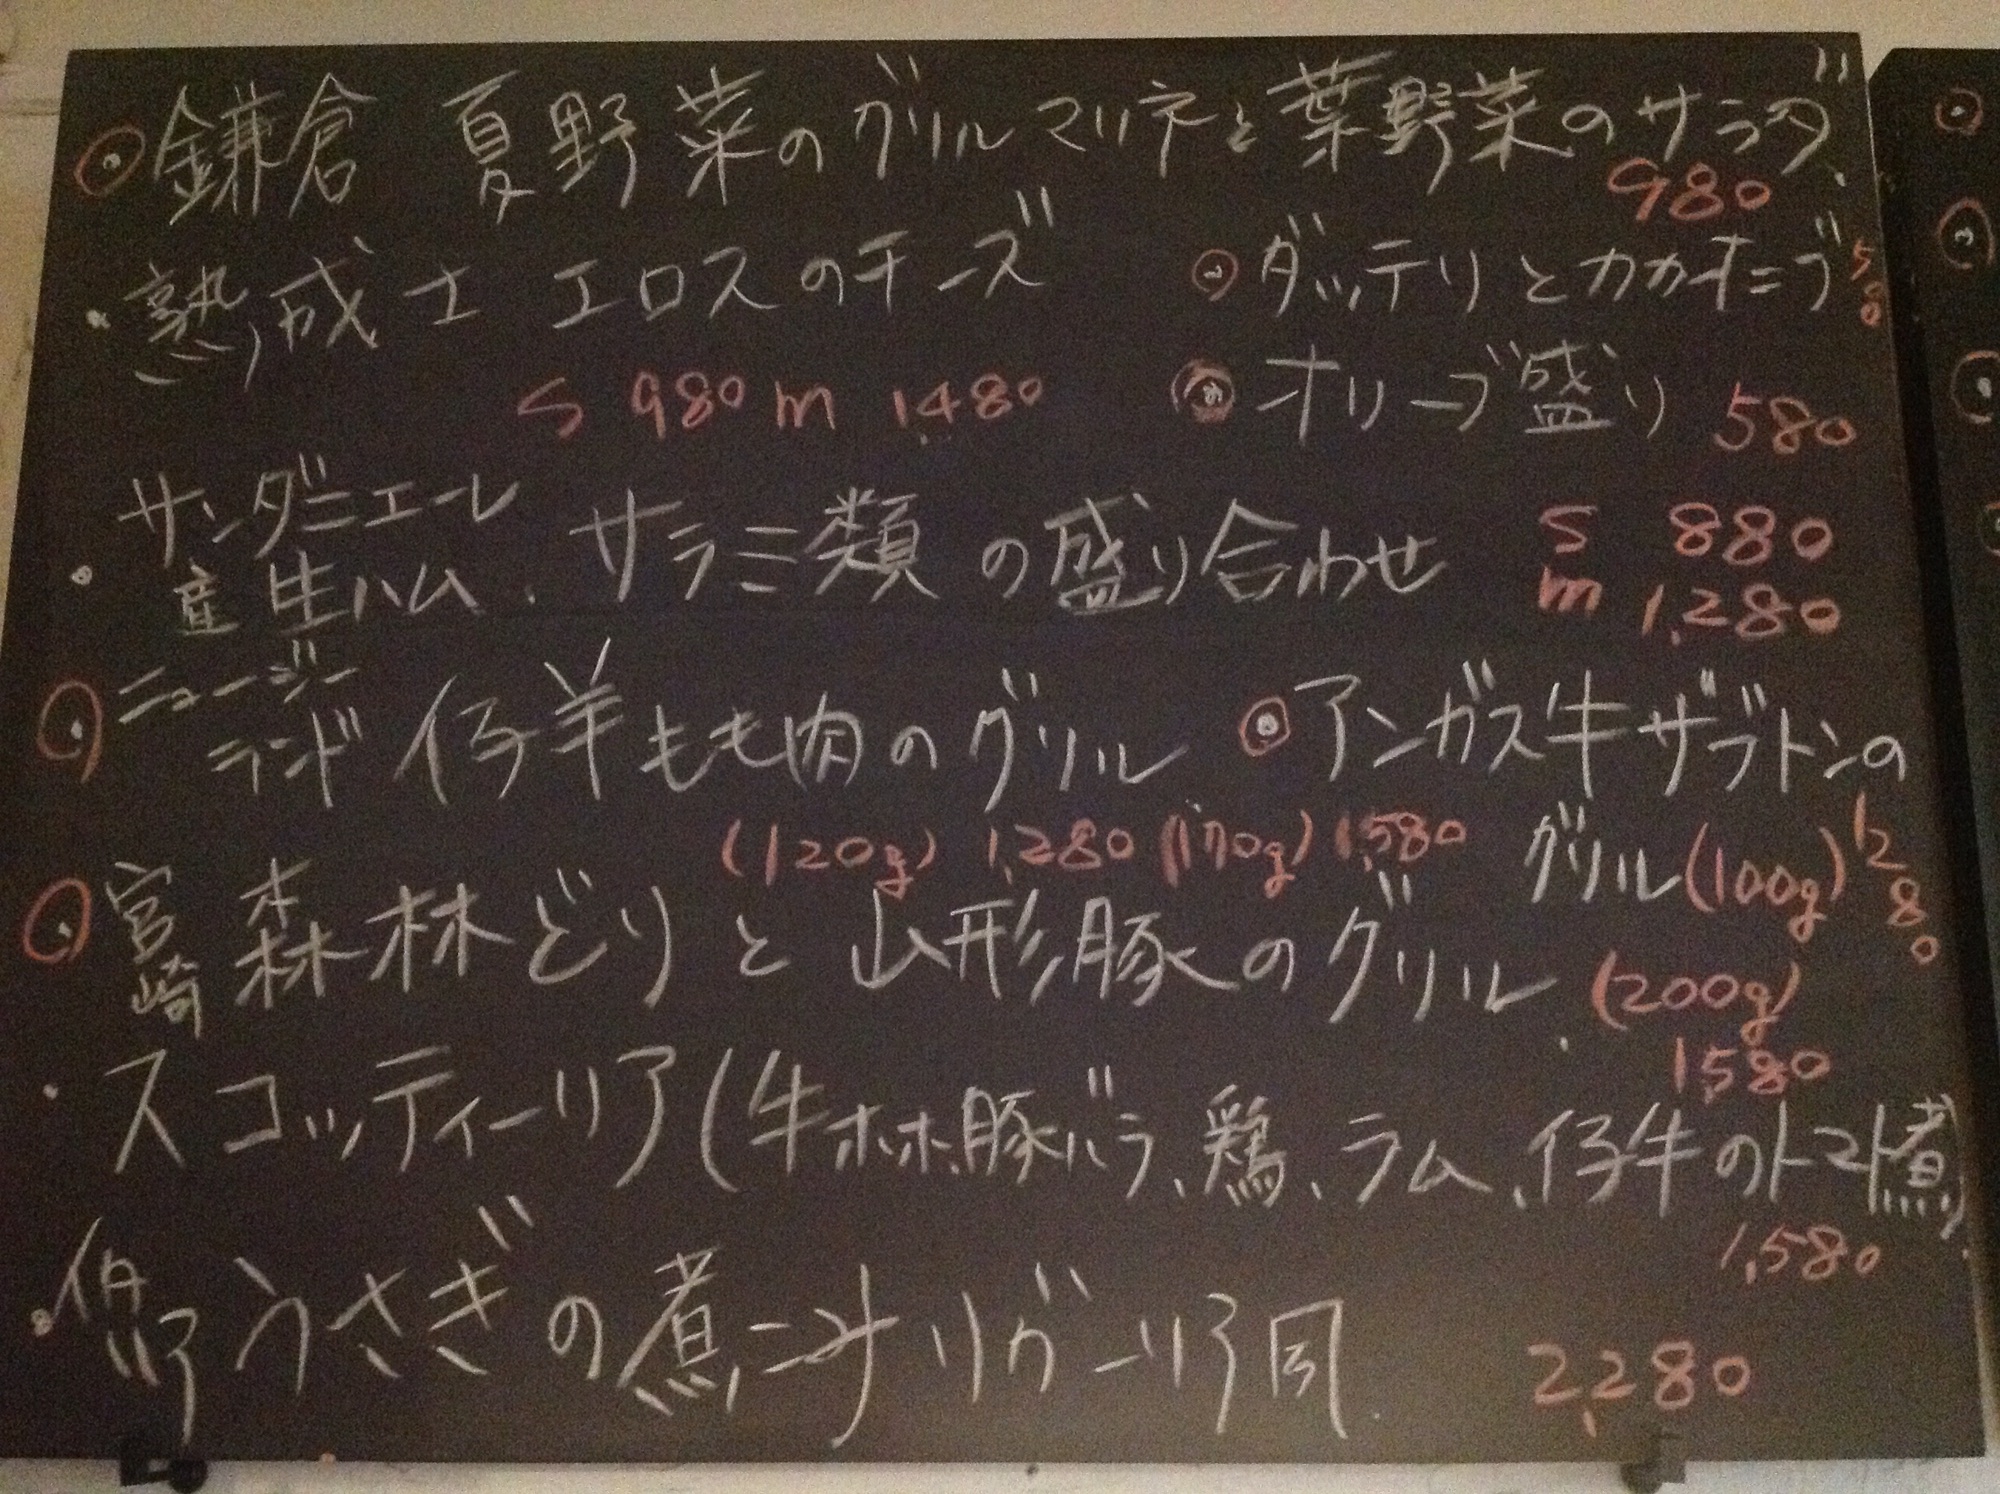 鎌倉 夏野菜のグリルマリネと葉野菜のサラダ
980
・熟成士 エロスのチーズ
S 980 m 1480
ダッテリとカカオニブ 500
オリーブ盛り 580
・サンダニエーレ産 生ハム、サラミ類の盛り合わせ
S 880
m 1,280
ニュージーランド 仔羊もも肉のグリル
(120g) 1,280 (170g) 1,580
アンガス牛ザブトンの
グリル (100g) 1280
(200g)
1580
宮崎 森林どりと山形豚のグリル
・スコッティーリア(牛ホホ、豚バラ、鶏、ラム、仔牛のトマト煮)
1,580
うさぎの煮こみ リグーリア風
2,280